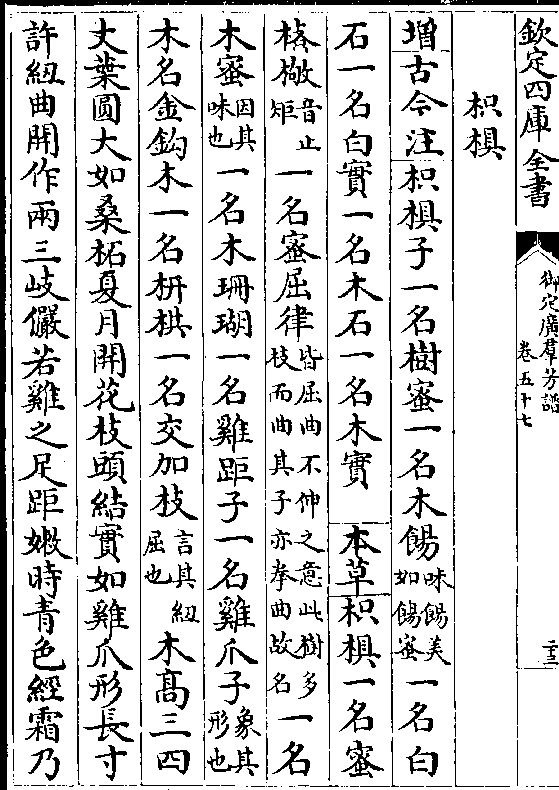 欽定四庫全書
御定廣羣芳譜
卷五十七
二十三
枳椇
增古今注枳椇子一名樹蜜一名木餳味美如餳蜜一名白
石一名白實一名木石一名木實 本草枳椇一名蜜
𣖌𣓌音止矩一名蜜屈律皆屈曲不伸之意此樹多枝而曲其子亦拳曲故名一名
木蜜因其味也一名木珊瑚一名雞距子一名雞爪子象其形也
木名金鈎木一名枅栱一名交加枝言其紐屈也木髙三四
丈葉圓大如桑柘夏月開花枝頭結實如雞爪形長寸
許紐曲開作兩三岐儼若雞之足距嫩時青色經霜乃